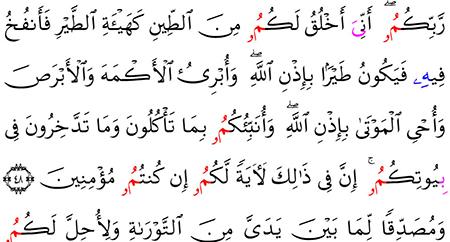 رَّبِّكُمُۥ ۖ أَنِّىَ أَخْلُقُ لَكُمُۥ مِنَ ٱلطِّينِ كَهَيْـَٔةِ ٱلطَّيْرِ فَأَنفُخُ
فِيهِۦ فَيَكُونُ طَيْرَۢا بِإِذْنِ ٱللَّهِ ۖ وَأُبْرِئُ ٱلْأَكْمَهَ وَٱلْأَبْرَصَ
وَأُحْىِ ٱلْمَوْتَىٰ بِإِذْنِ ٱللَّهِ ۖ وَأُنَبِّئُكُمُۥ بِمَا تَأْكُلُونَ وَمَا تَدَّخِرُونَ فِى
بِيُوتِكُمُۥ ۚ إِنَّ فِى ذَٰلِكَ لَأٓيَةً لَّكُمُۥ إِن كُنتُمُۥ مُؤْمِنِينَ ٤٨
وَمُصَدِّقًا لِّمَا بَيْنَ يَدَىَّ مِنَ ٱلتَّوْرَىٰةِ وَلِأُحِلَّ لَكُمُۥ